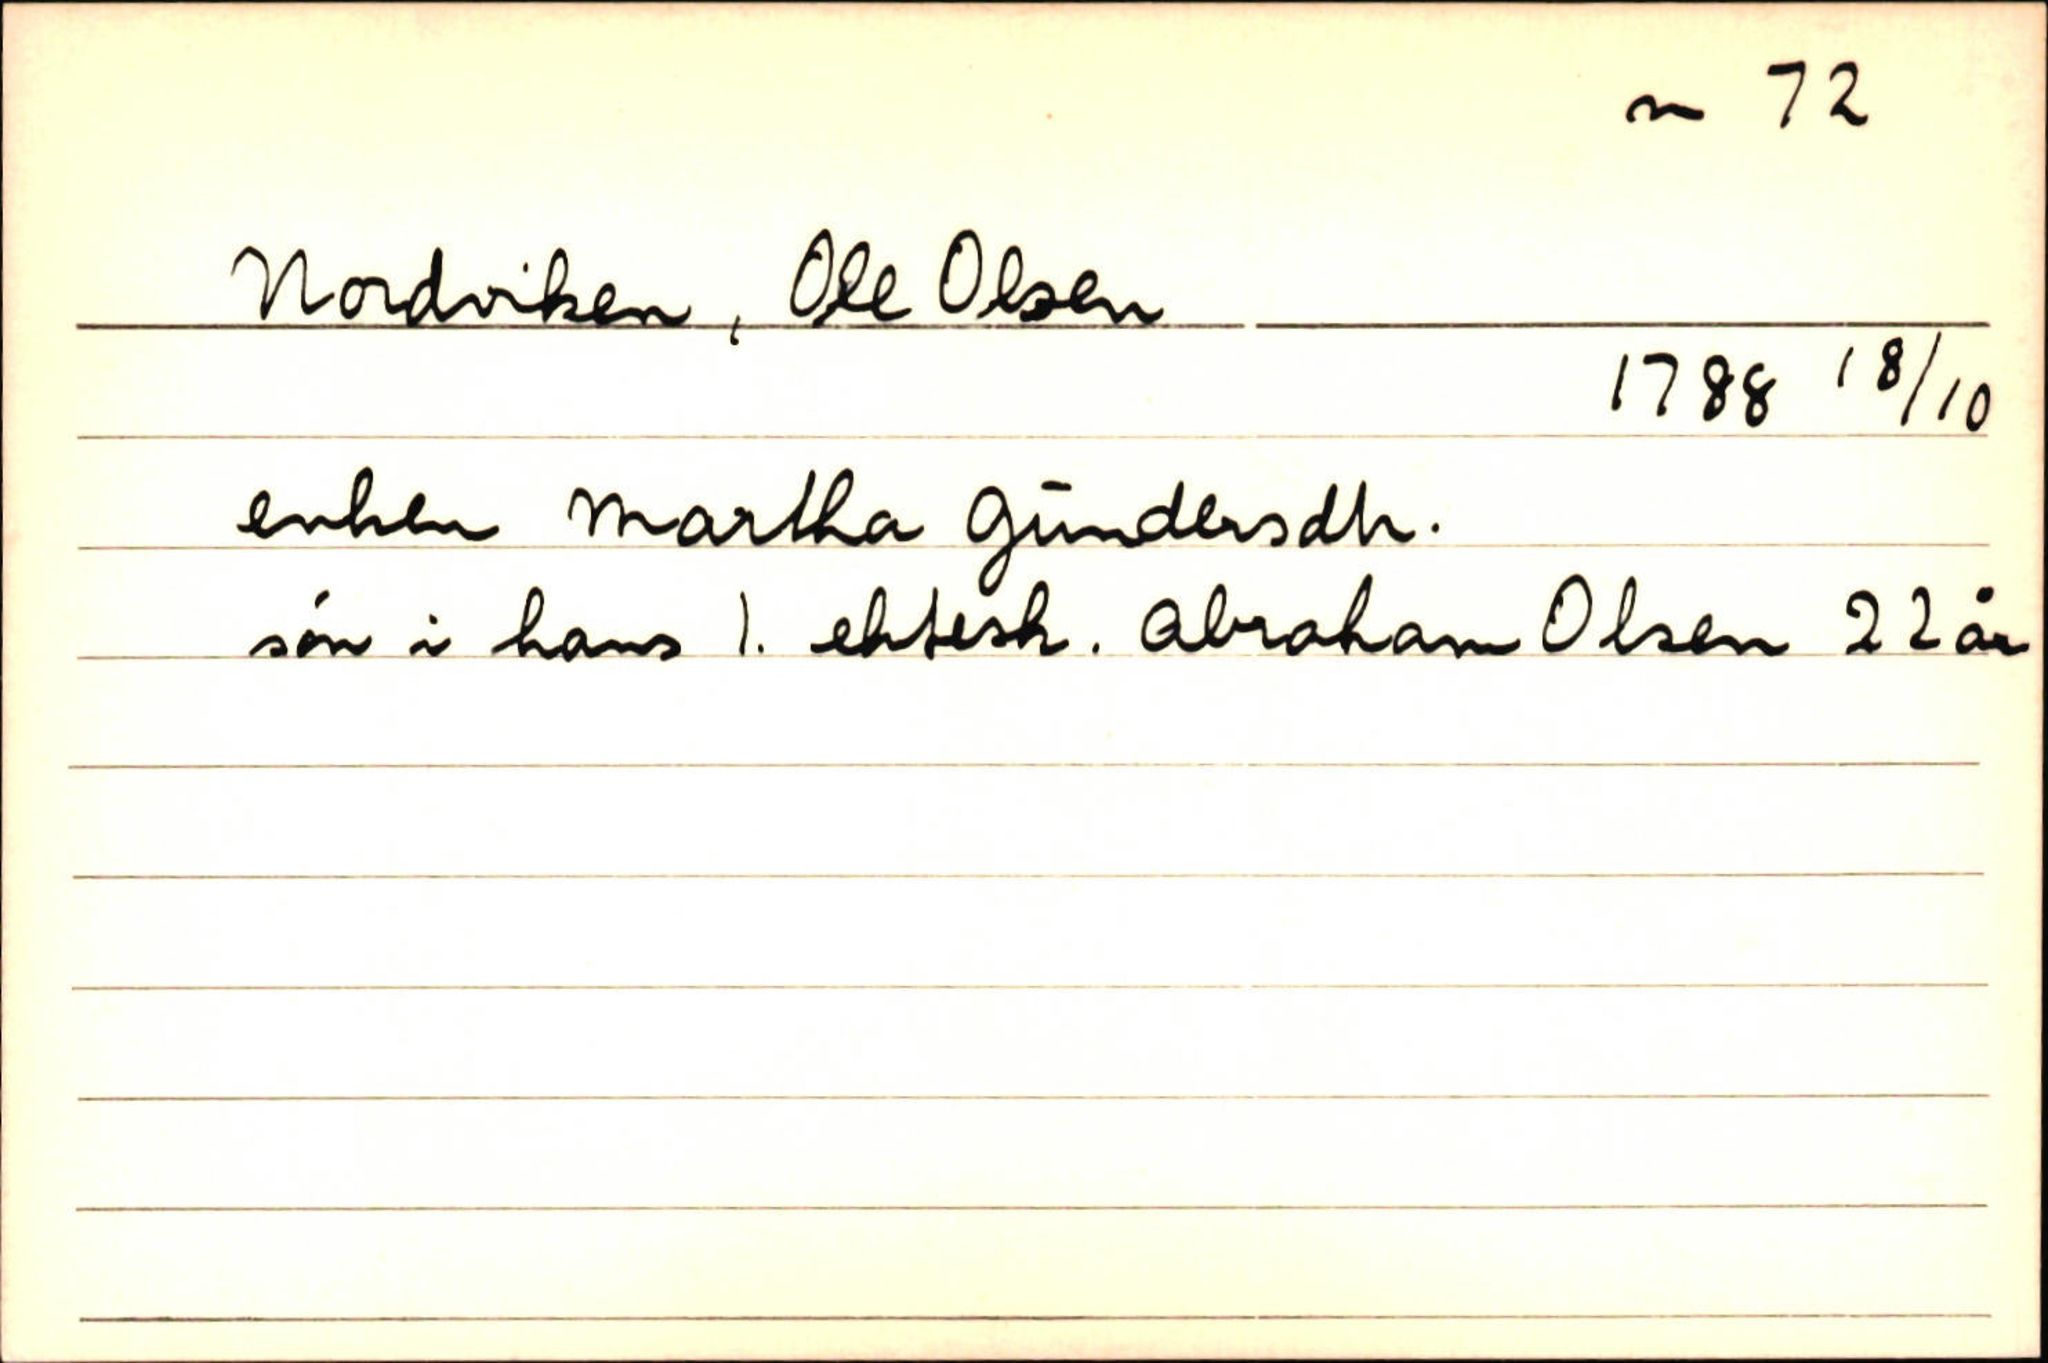 n 72
Nordviken, Ole Olsen
1788 18/10
enken Martha Gūndersdtr.
søn i hans 1. ektesk. Abraham Olsen 22 år